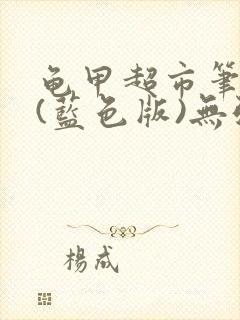 龟甲超市筆
(藍色版)無
楊成